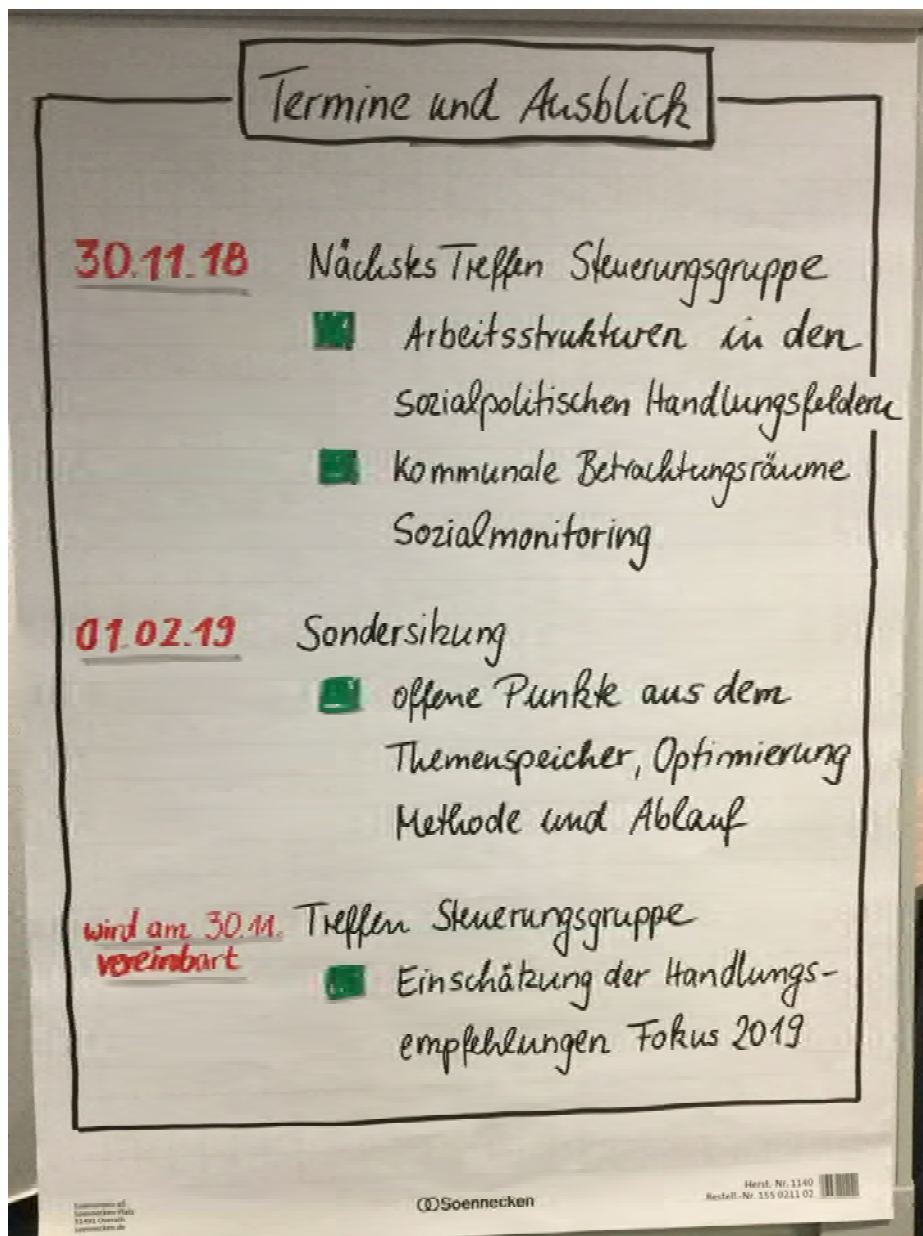 Termine und Ausblick
30.11.18 Nächstes Treffen Steuerungsgruppe
Arbeitsstrukturen in den
sozialpolitischen Handlungsfeldern
Kommunale Betrachtungsräume
Sozialmonitoring
01.02.19 Sondersitzung
offene Punkte aus dem
Themenspeicher, Optimierung
Methode und Ablauf
wird am 30.11. Treffen Steuerungsgruppe
vereinbart
Einschätzung der Handlungs-
empfehlungen Fokus 2019
Soennecken eG
Soennecken-Platz
51491 Overath
soennecken.de
Soennecken
Herst. Nr. 1140
Bestell-Nr. 155 0211 02